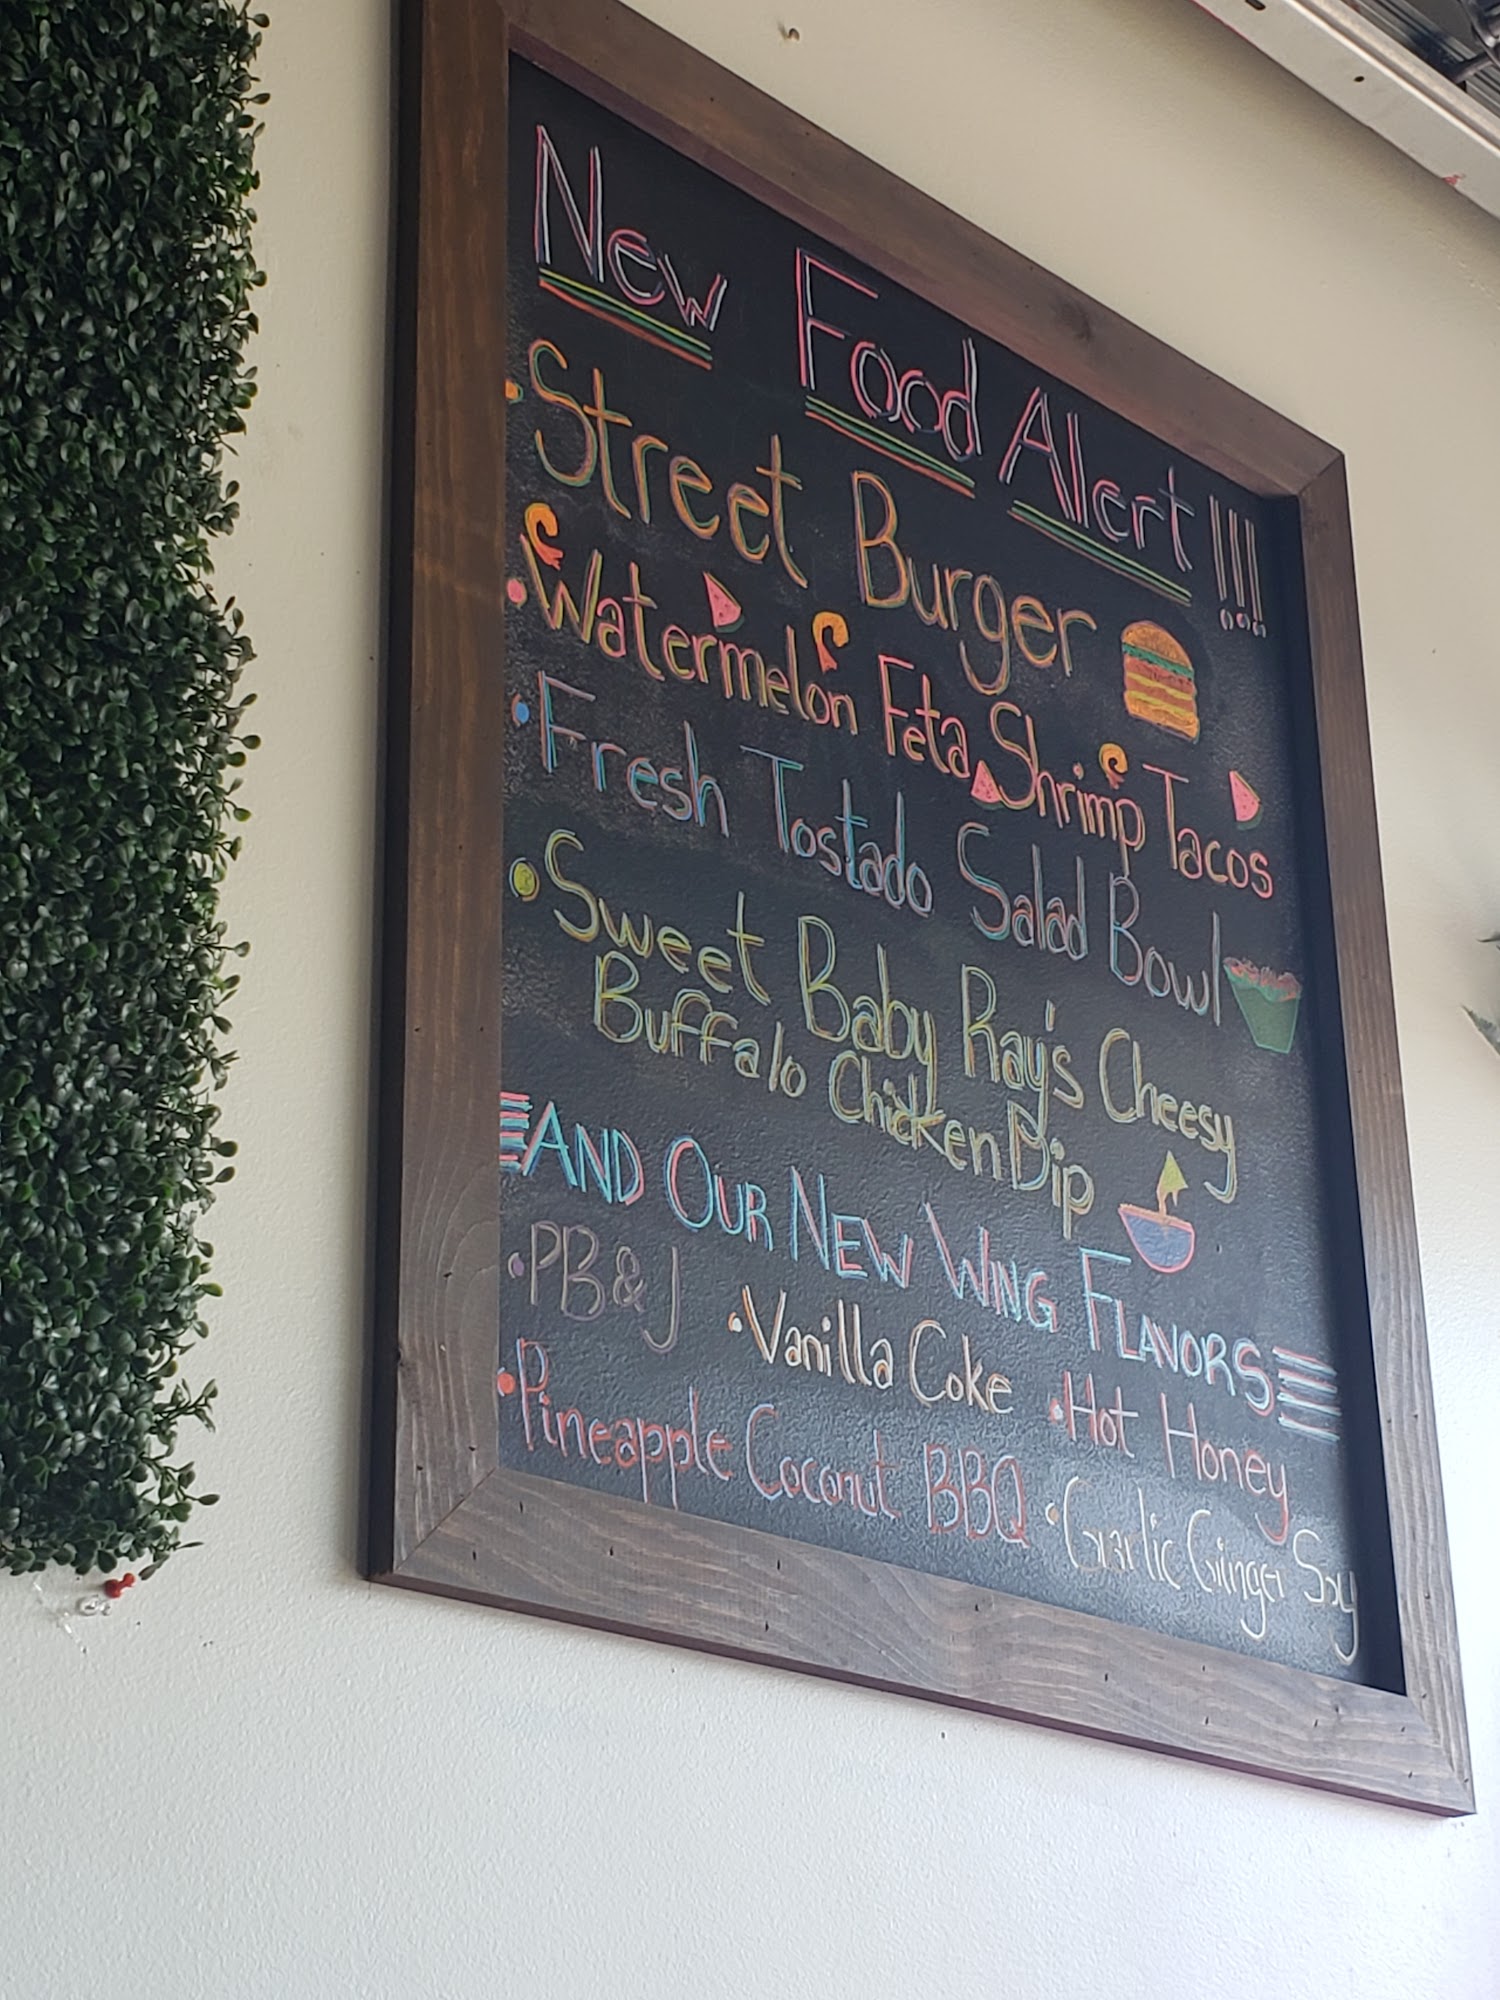 New Food Alert!!!
• Street Burger
• Watermelon Feta Shrimp Tacos
• Fresh Tostado Salad Bowl
• Sweet Baby Ray's Cheesy
Buffalo Chicken Dip
AND OUR NEW WING FLAVORS
• PB&J • Vanilla Coke • Hot Honey
• Pineapple Coconut BBQ • Garlic Ginger Soy